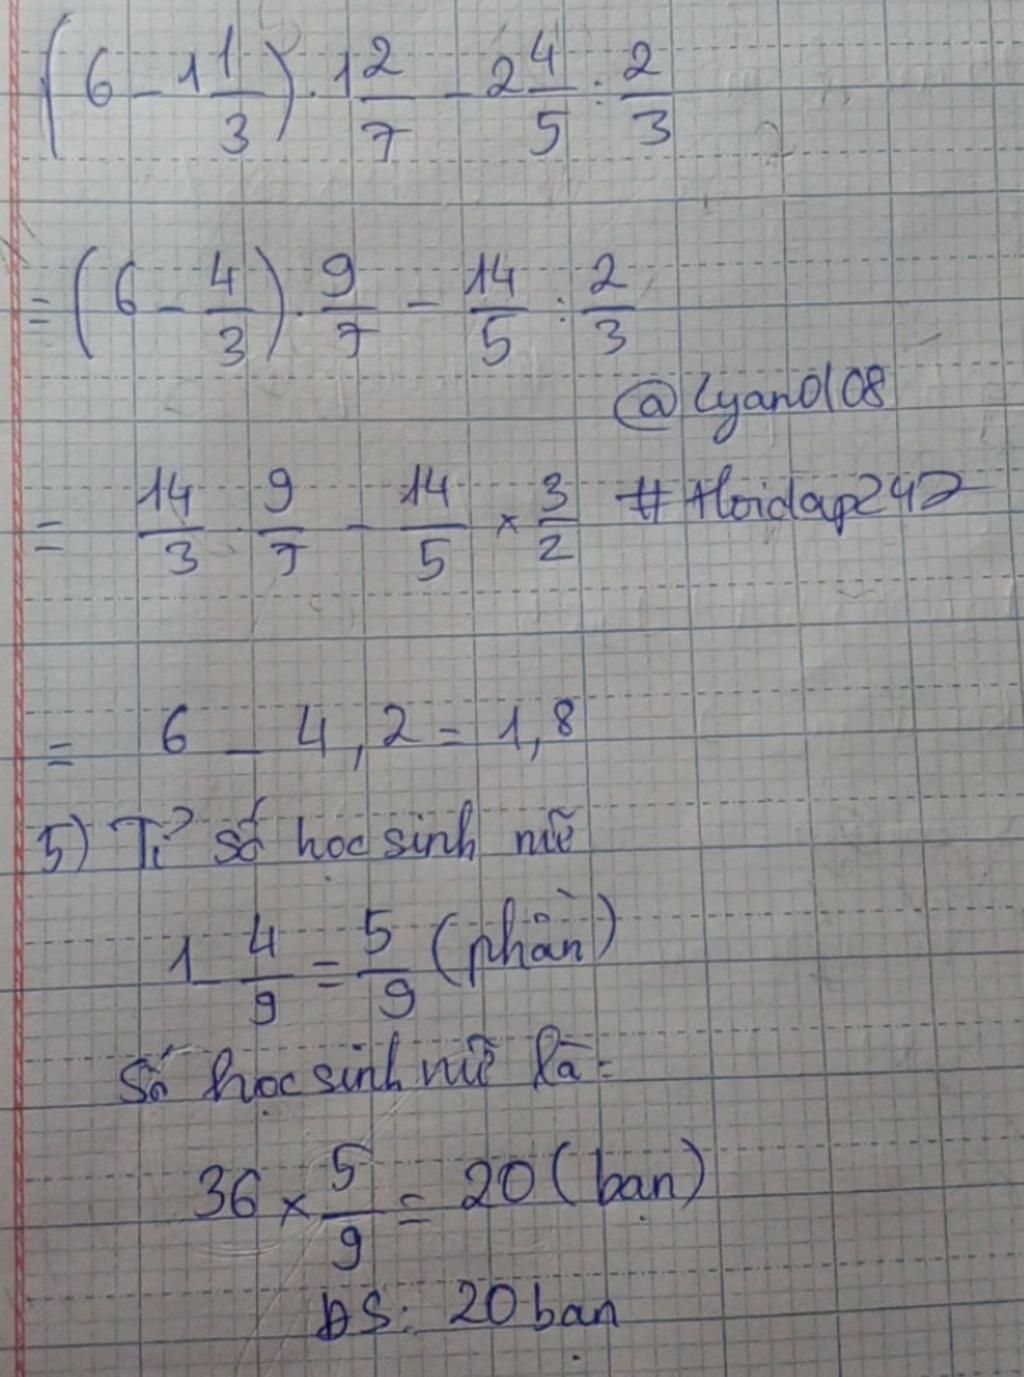 (6 - 1 1/3) . 1 2/7 - 2 4/5 : 2/3
= (6 - 4/3) . 9/7 - 14/5 : 2/3
@ lyand108
= 14/3 . 9/7 - 14/5 × 3/2 # Hoidap247
= 6 - 4,2 = 1,8
5) Tỉ số học sinh nữ
1 - 4/9 = 5/9 (phần)
Số học sinh nữ là:
36 × 5/9 = 20 (bạn)
ĐS: 20 bạn